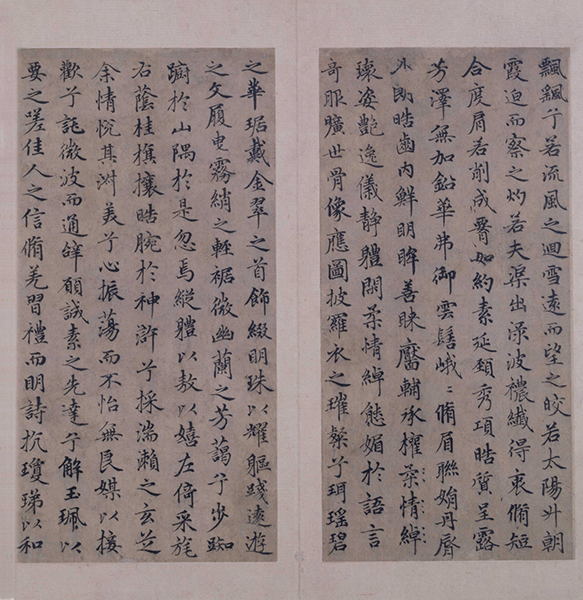 飄飄兮若流風之迴雪遠而望之皎若太陽升朝
霞迫而察之灼若夫渠出淥波穠纖得衷脩短
合度肩若削成腰如約素延頸秀項晧質呈露
芳澤無加鉛華弗御雲髻峨〻脩眉聯娟丹脣
外朗皓齒內鮮明眸善睞靨輔承權柔情綽
瓌姿艷逸儀靜體閑柔情綽態媚於語言
奇服曠世骨像應圖披羅衣之璀粲兮珥瑤碧
之華琚戴金翠之首飾綴明珠以耀軀踐遠遊
之文履曳霧綃之輕裾微幽蘭之芳藹兮步踟
躕於山隅於是忽焉縱體以敖以嬉左倚采旄
右蔭桂旗攘皓腕於神滸兮採湍瀨之玄芝
余情悅其淑美兮心振蕩而不怡無良媒以接
歡兮託微波而通辭願誠素之先達兮解玉珮以
要之嗟佳人之信脩羌習禮而明詩抗瓊珶以和